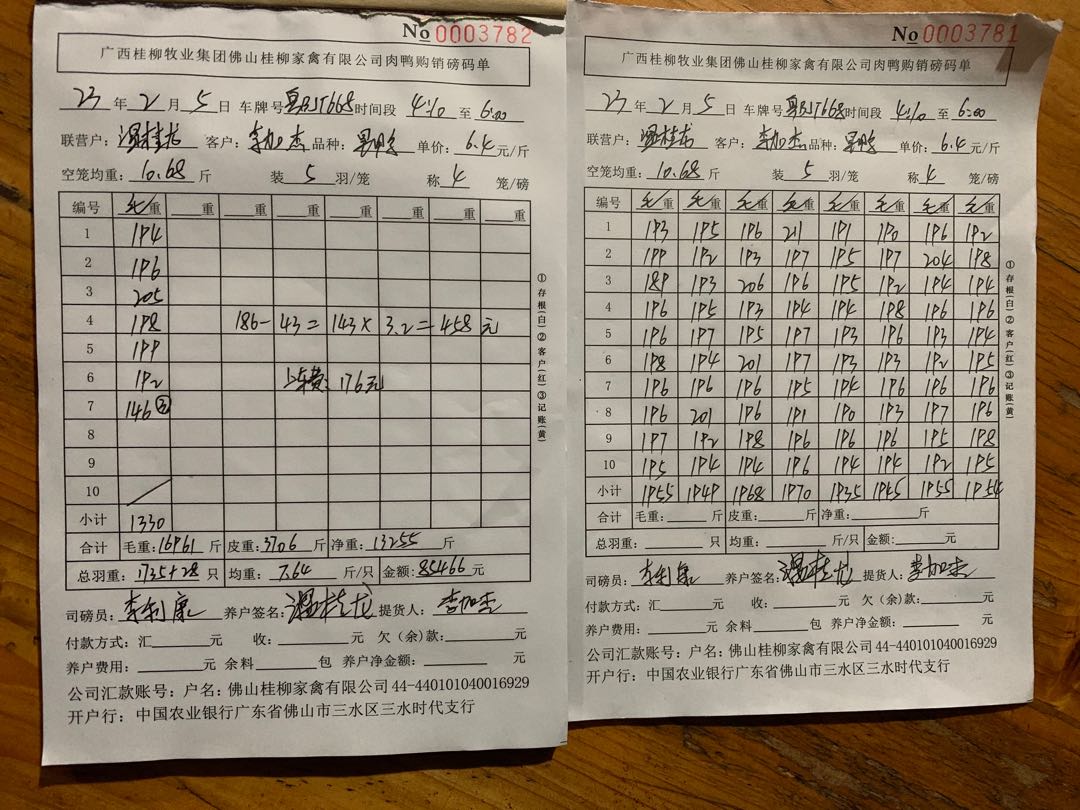 No 0003782
广西桂柳牧业集团佛山桂柳家禽有限公司肉鸭购销磅码单
23 年 2 月 5 日 车牌号 时间段 至 6:00
联营户: 客户: 李加杰 品种: 单价: 6.4 元/斤
空笼均重: 10.68 斤 装 5 羽/笼 称 4 笼/磅
编号 毛重 重 重 重 重 重 重 重
1 194
2 196
3 205
4 198 186-43=143×3.2=458元
5 199
6 192 上车费: 176元
7 146 ③
8
9
10
小计 1330
合计 毛重: 16961 斤 皮重: 3706 斤 净重: 13255 斤
总羽重: 1735+28 只 均重: 7.64 斤/只 金额: 85466 元
司磅员: 养户签名: 提货人: 李加杰
付款方式: 汇 元 收: 元 欠(余)款: 元
养户费用: 元 余料 包 养户净金额: 元
公司汇款账号: 户名: 佛山桂柳家禽有限公司 44-440101040016929
开户行: 中国农业银行广东省佛山市三水区三水时代支行
①存根(白)②客户(红)③记账(黄)
No 0003781
广西桂柳牧业集团佛山桂柳家禽有限公司肉鸭购销磅码单
23 年 2 月 5 日 车牌号 时间段 至 6:00
联营户: 客户: 李加杰 品种: 单价: 6.4 元/斤
空笼均重: 10.68 斤 装 5 羽/笼 称 4 笼/磅
编号 毛重 毛重 毛重 毛重 毛重 毛重 毛重 毛重
1 193 195 196 211 191 190 196 192
2 199 192 193 197 195 197 204 198
3 189 193 206 196 195 192 194 194
4 196 195 193 194 194 198 196 196
5 196 197 195 197 193 196 193 194
6 198 194 201 197 193 193 192 195
7 196 196 196 195 194 196 196 196
8 196 201 196 191 190 193 197 196
9 197 192 198 196 196 196 195 198
10 195 194 194 196 194 194 192 195
小计 1955 1949 1968 1970 1935 1945 1955 1954
合计 毛重: 斤 皮重: 斤 净重: 斤
总羽重: 只 均重: 斤/只 金额: 元
司磅员: 养户签名: 提货人: 李加杰
付款方式: 汇 元 收: 元 欠(余)款: 元
养户费用: 元 余料 包 养户净金额: 元
公司汇款账号: 户名: 佛山桂柳家禽有限公司 44-440101040016929
开户行: 中国农业银行广东省佛山市三水区三水时代支行
①存根(白)②客户(红)③记账(黄)